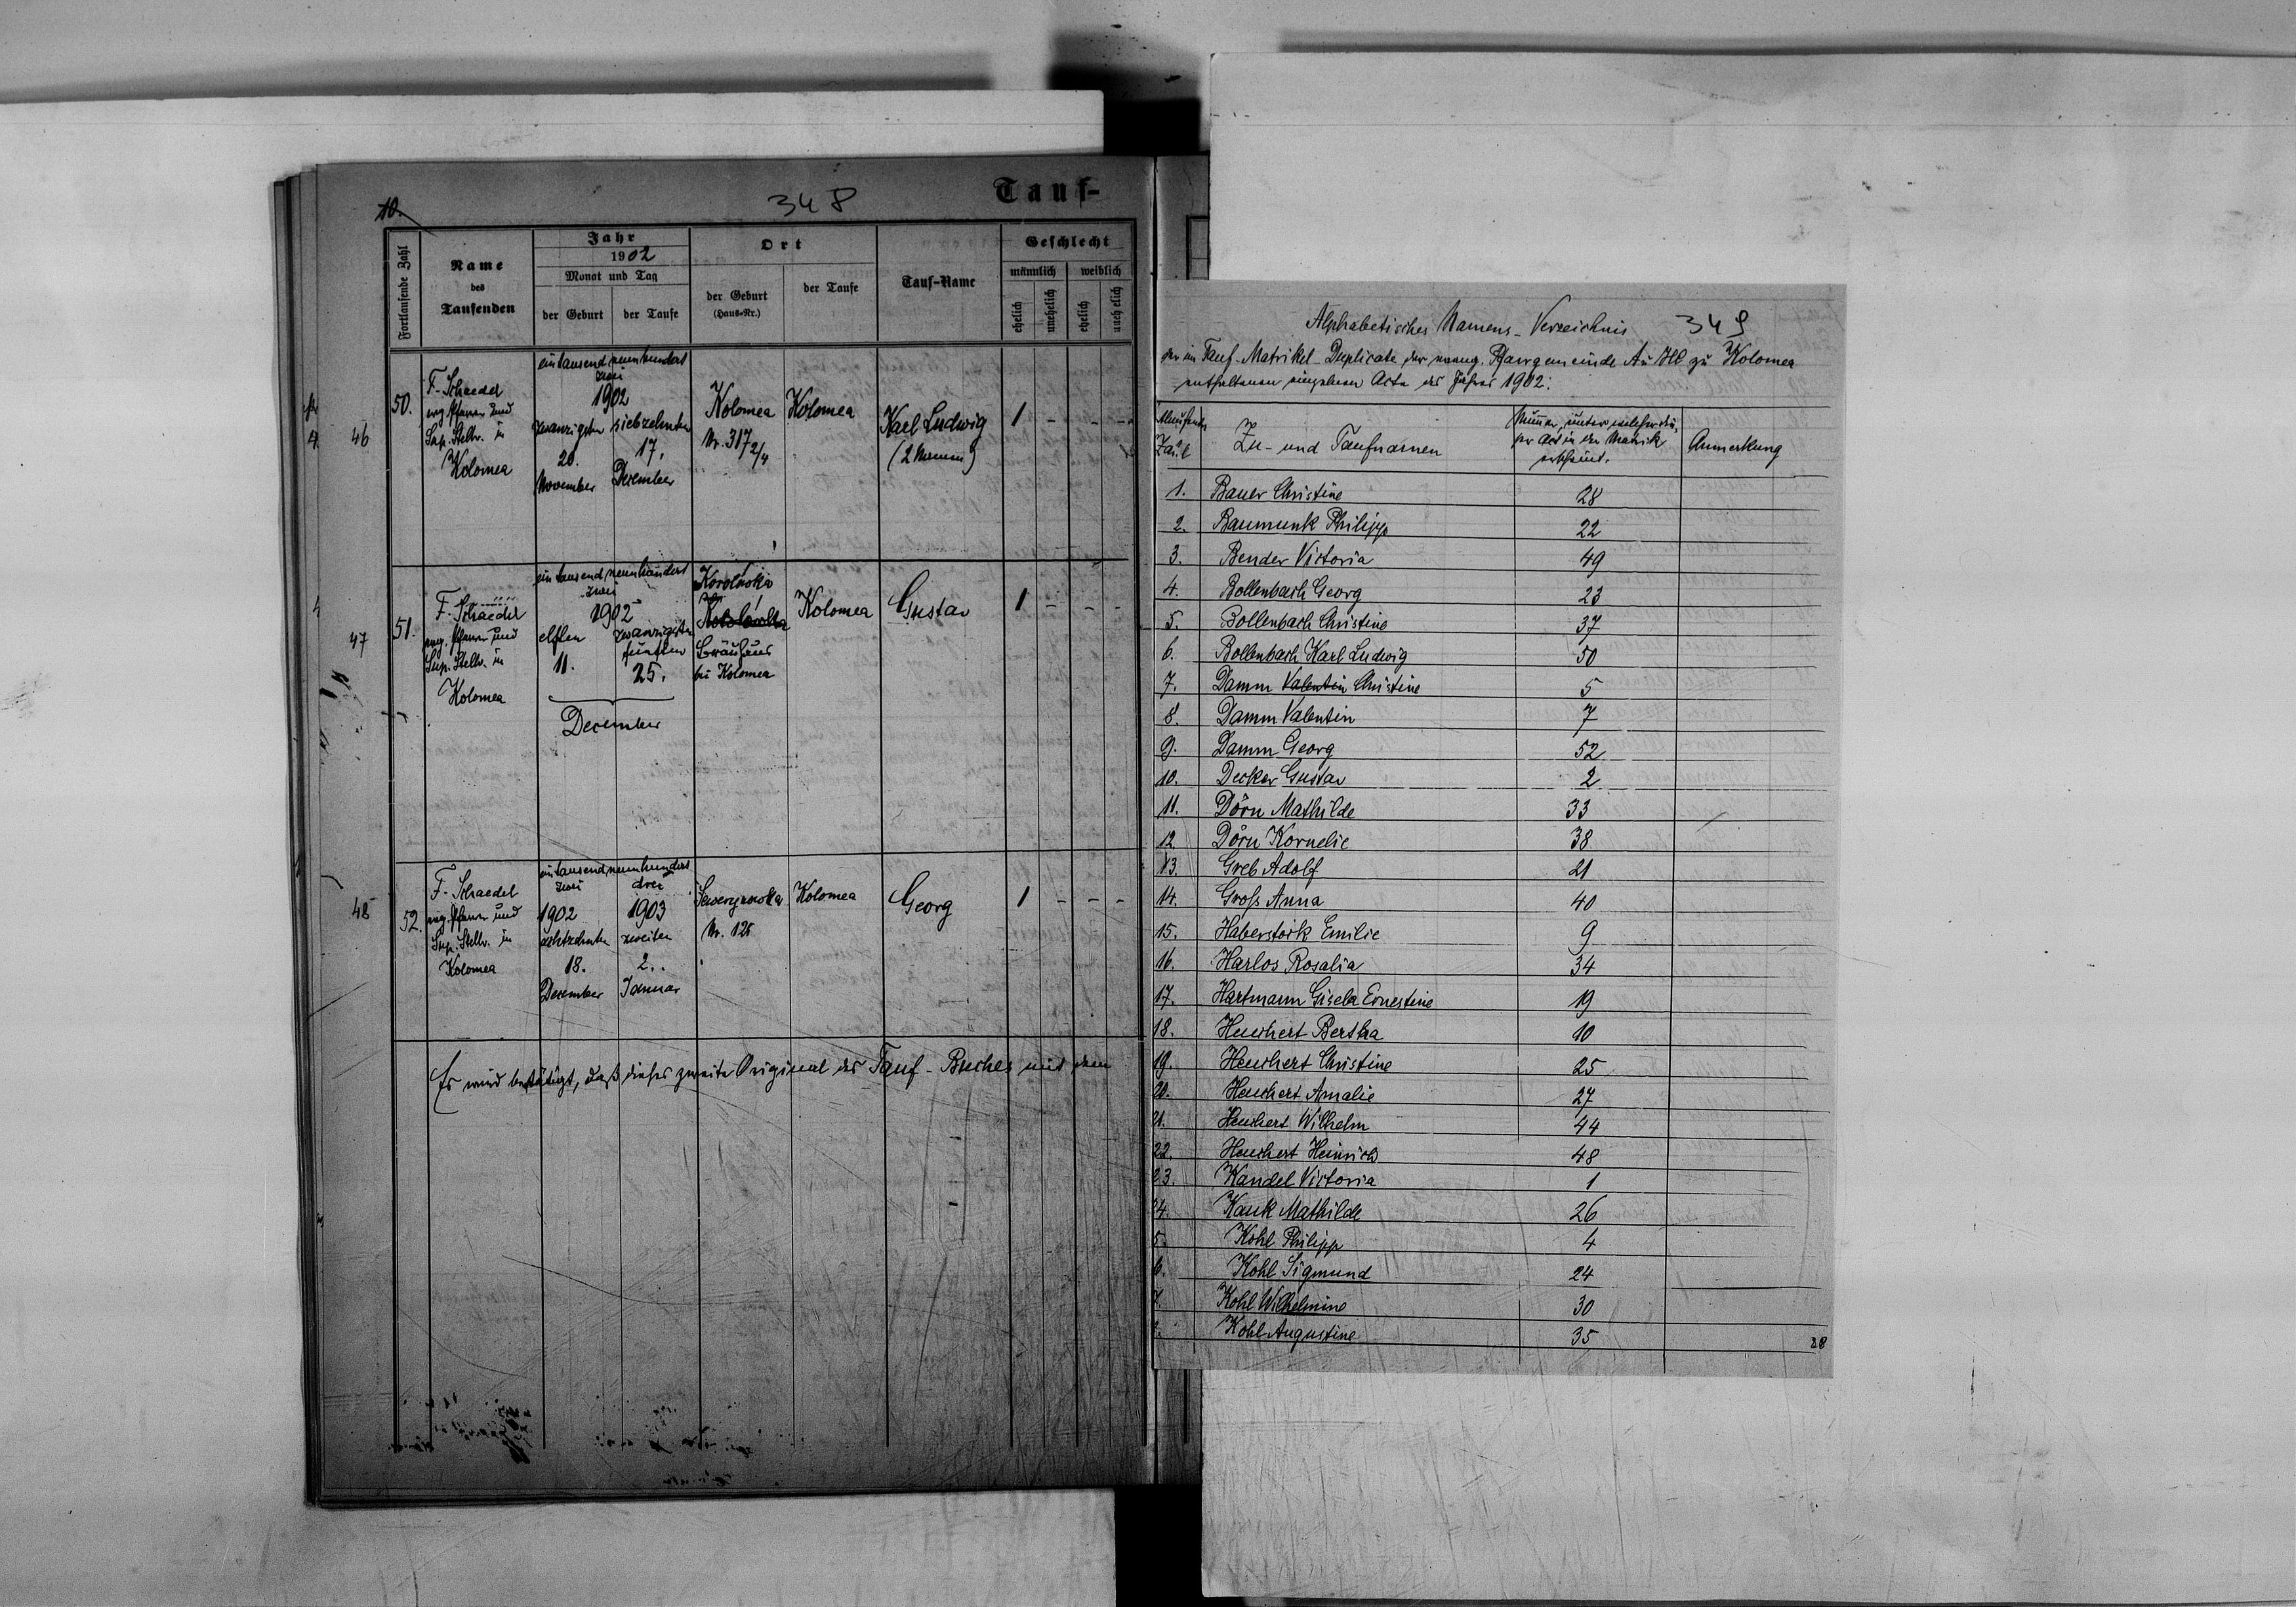 10.
348
Tauf-
Fortlaufende Zahl
Name
des
Taufenden
Jahr
1902
Monat und Tag
der Geburt
der Taufe
Ort
der Geburt
(Haus-Nr.)
der Taufe
Tauf-Name
Geschlecht
männlich
weiblich
ehelich
unehelich
ehelich
unehelich
46
50.
F. Schaedel
evg. Pfarrer und
Sup. Stellv. in
Kolomea
eintausendneunhundert
zwei
1902
zwanzigsten siebzehnten
20. 17.
November December
Kolomea
Nr. 317 2/4
Kolomea
Karl Ludwig
(2 Namen)
1 - - -
47
51.
F. Schaedel
evg. Pfarrer und
Sup. Stellv. in
Kolomea
eintausendneunhundert
zwei
1902
elften zwanzigsten
fünften
11. 25.
December
Bräuhaus
bei Kolomea
Kolomea
Gustav
1 - - -
48
52.
F. Schaedel
evg. Pfarrer und
Sup. Stellv. in
Kolomea
eintausendneunhundert
zwei drei
1902 1903
achtzehnten zweiten
18. 2.
December Januar
Sewerynowka
Nr. 125
Kolomea
Georg
1 - - -
Es wird bestätigt, daß dieses zweite Original des Tauf-Buches mit dem
Alphabetisches Namens-Verzeichnis
349
der im Tauf-Matrikel-Duplicate der evang. Pfarrgemeinde A. u. HB zu Kolomea
enthaltenen einzelnen Acte des Jahres 1902.
Zahl
Zu- und Taufnamen
Nummer, unter welcher die-
ser Act in der Matrik
erscheint.
Anmerkung
1. Bauer Christine 28
2. Baumunk Philipp 22
3. Bender Victoria 49
4. Bollenbach Georg 23
5. Bollenbach Christine 37
6. Bollenbach Karl Ludwig 50
7. Damm Valentin Christine 5
8. Damm Valentin 7
9. Damm Georg 52
10. Decker Gustav 2
11. Dörn Mathilde 33
12. Dörn Kornelie 38
13. Greb Adolf 21
14. Groß Anna 40
15. Haberstock Emilie 9
16. Harlos Rosalia 34
17. Hartmann Gisela Ernestine 19
18. Heuchert Bertha 10
19. Heuchert Christine 25
20. Heuchert Amalie 27
21. Heuchert Wilhelm 44
22. Heuchert Heinrich 48
23. Kandel Victoria 1
24. Kauk Mathilde 26
5. Kohl Philipp 4
6. Kohl Sigmund 24
7. Kohl Wilhelmine 30
Kohl Augustine 35
28